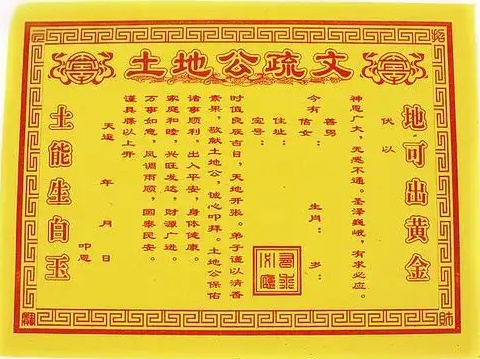 土地公疏文
地可出黄金
伏以
神恩广大，无感不通。圣泽巍峨，有求必应。
今有 善男 信女 生肖： 岁：
住址：
宝号：
时值良辰吉日，天地开张。弟子谨以清香
素果，敬献土地公，诚心叩拜。土地公保佑
诸事顺利，出入平安，身体健康。
家庭和睦，兴旺发达，财源广进。
万事如意，风调雨顺，国泰民安。
谨具牒以上开
天运 年 月 日 叩恩
土能生白玉
有求必应